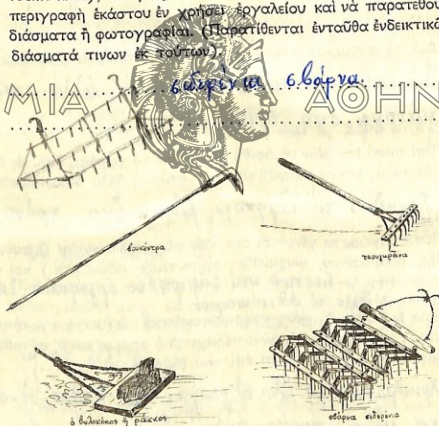 περιγραφὴ ἑκάστου ἐν χρήσει ἐργαλείου καὶ νὰ παρατεθοῦ
διάσματα ἢ φωτογραφίαι. (Παρατίθενται ἐνταῦθα ἐνδεικτικά
διάσματά τινων ἐκ τούτων).
σιδερένια σβάρνα
ΜΙΑ ΑΘΗΝ
βουκέντρα
τσουγκράνα
ὁ βωλοκόπος ἢ ράκκος
σβάρνα σιδερένια